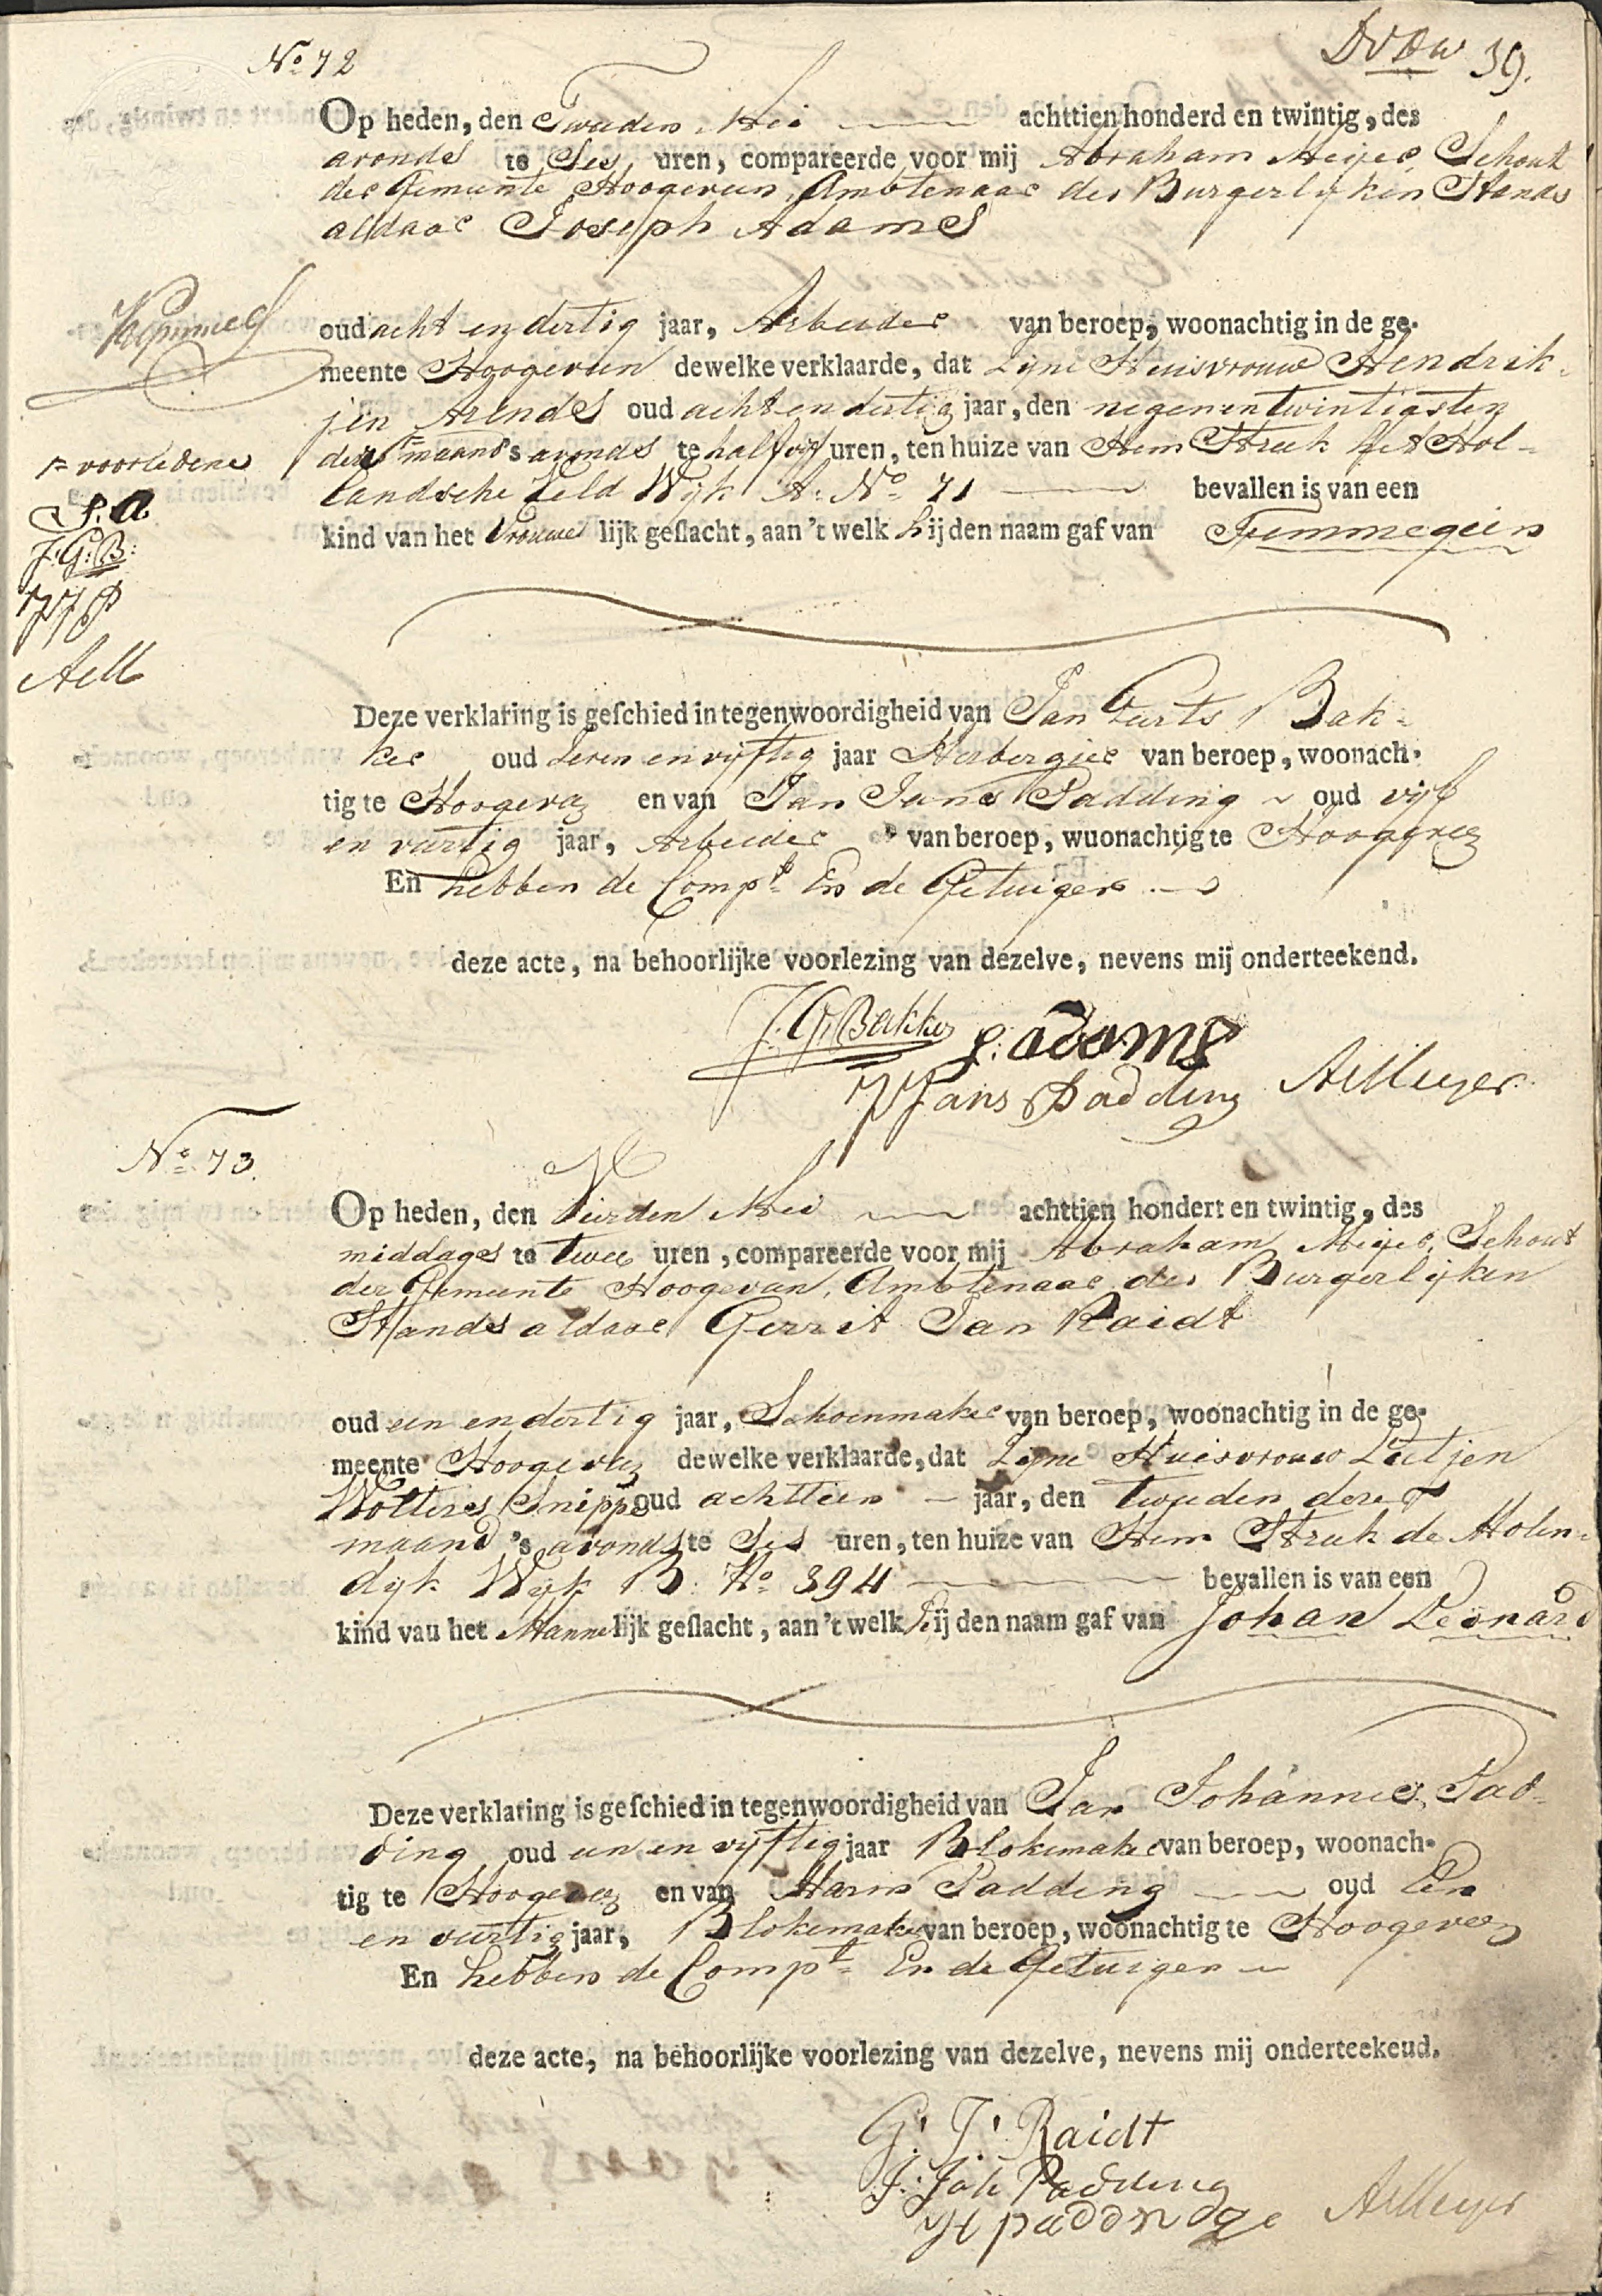 No 72
DVDW 39.
Op heden, den Tweeden Mei achttien honderd en twintig, des
avonds te Ses uren, compareerde voor mij Abraham Meijer Schout
der Gemeente Hoogeveen, Ambtenaar des Burgerlijken Stands
aldaar Joseph Adams
oud acht en dertig jaar, Arbeider van beroep, woonachtig in de ge-
meente Hoogeveen dewelke verklaarde, dat Zijne Huisvrouw Hendrik-
jen Arends oud acht en dertig jaar, den negenentwintigsten
der maand 's avonds te half vijf uren, ten huize van Hem Struk het Hol-
= voorledene
landsche Veld Wijk A: No 71 bevallen is van een
kind van het Vrouwe lijk geslacht, aan 't welk hij den naam gaf van Femmegien
S. a
J. G: B:
JJP
AM
Deze verklaring is geschied in tegenwoordigheid van Jan Geerts Bak-
ker oud Seven en vijftig jaar Herbergier van beroep, woonach-
tig te Hoogeveen en van Jan Jans Padding oud vijf
en veertig jaar, Arbeider van beroep, wuonachtig te Hoogeveen
En hebben de Compt En de Getuigen
deze acte, na behoorlijke voorlezing van dezelve, nevens mij onderteekend.
J. G. Bakker S: adams
J Jans Padding AMeijer
No 73.
Op heden, den Vierden Mei achttien hondert en twintig, des
middags te twee uren, compareerde voor mij Abraham Meijer, Schout
der Gemeente Hoogeveen, Ambtenaar des Burgerlijken
Stands aldaar Gerrit Jan Raidt
oud een en dertig jaar, Schoenmaker van beroep, woonachtig in de ge-
meente Hoogeveen dewelke verklaarde, dat Zijne Huisvrouw Lutjen
Wolters Snippe oud achttien jaar, den tweeden dezer
maand 's avonds te Ses uren, ten huize van Hem Struk de Molen-
dijk Wijk B: No 394 bevallen is van een
kind vau het Manne lijk geslacht, aan 't welk hij den naam gaf van Johan Leonard
Deze verklaring is geschied in tegenwoordigheid van Jan Johannes Pad-
ding oud een en vijftig jaar Blokemaker van beroep, woonach-
tig te Hoogeveen en van Harm Padding oud Een
en veertig jaar, Blokemaker van beroep, woonachtig te Hoogeveen
En hebben de Compt En de Getuigen
deze acte, na behoorlijke voorlezing van dezelve, nevens mij onderteekeud.
G: J: Raidt
J: Joh Padding
H paddndge AMeijer